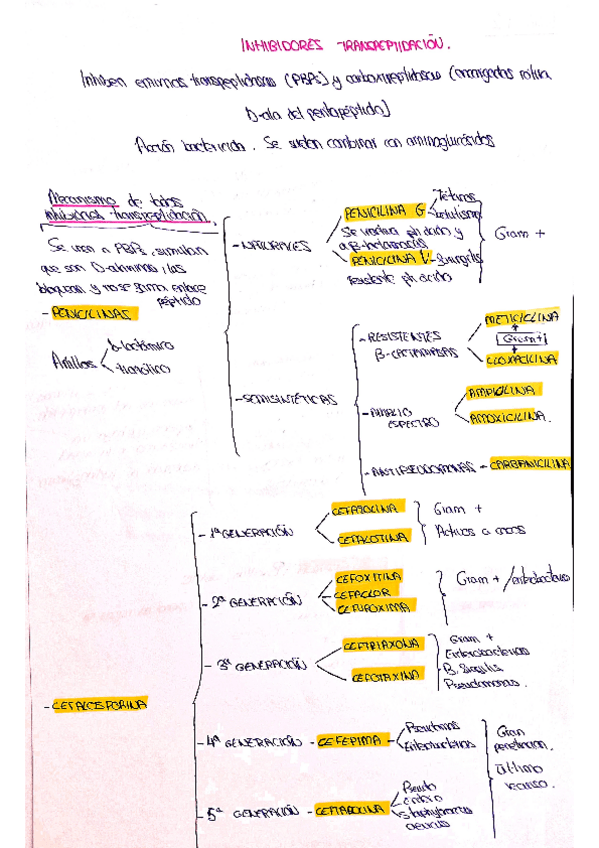 INHIBIDORES TRANSPEPTIDACIÓN.
Inhiben enzimas transpeptidasas (PBPs) y carboxipeptidasas (encargadas
D-ala del pentapéptido]
Acción bactericida. Se suelen combinar con aminoglucósidos
Mecanismo de todos
inhibidores transpeptidación
Se unen a PBPs, simulan
que son D-alaninas, las
bloquean y no se forma enlace
péptido
- PENICILINAS
Anillos
β-lactámico
tiazólico
- NATURALES
PENICILINA G
Tétanos
Se y
a β-lactamasas
PENICILINA V
resistente ph ácido
Gram +
- SEMISINTÉTICAS
- RESISTENTES
β-LACTAMASAS
METICICLINA
Gram +
CLOXACICLINA
- AMPLIO
ESPECTRO
AMPICILINA
AMOXICILINA.
- ANTIPSEUDOMONAS - CARBENICILINA
- CEFALOSPORINA
- 1ª GENERACIÓN
CEFAZOLINA
CEFALOTINA
Gram +
Activos a cocos
- 2ª GENERACIÓN
CEFOXITINA
CEFACLOR
CEFUROXIMA
Gram + /enterobacterias
- 3ª GENERACIÓN
CEFTRIAXONA
CEFOTAXINA
Gram +
Enterobacterias
B. Fragilis
Pseudomonas.
- 4ª GENERACIÓN - CEFEPIMA
Pseudomonas
Enterobacterias
- 5ª GENERACIÓN - CEFTAROLINA
Pseudo
Entero
Staphylococcus
aereus
Gran
penetración.
Último
recurso.